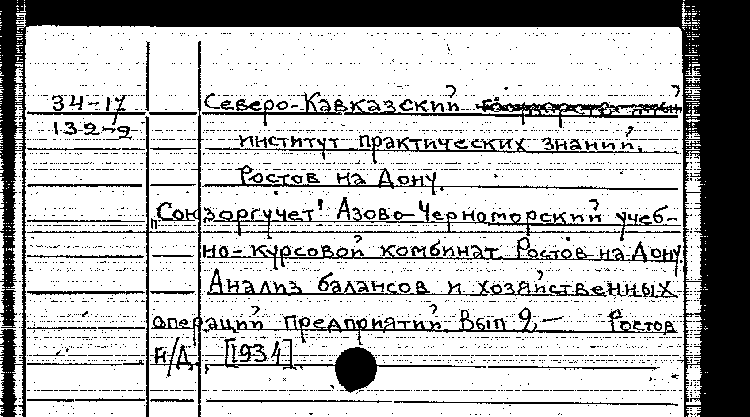 34-17 Северо-Кавказский
132-9 институт практических знаний.
Ростов на Дону.
„Союзоргучет" Азово-Черноморский учеб-
но-курсовой комбинат Ростов на Дону
Анализ балансов и хозяйственных
операций предприятий. Вып 2,— Ростов
н/Д., [1934].